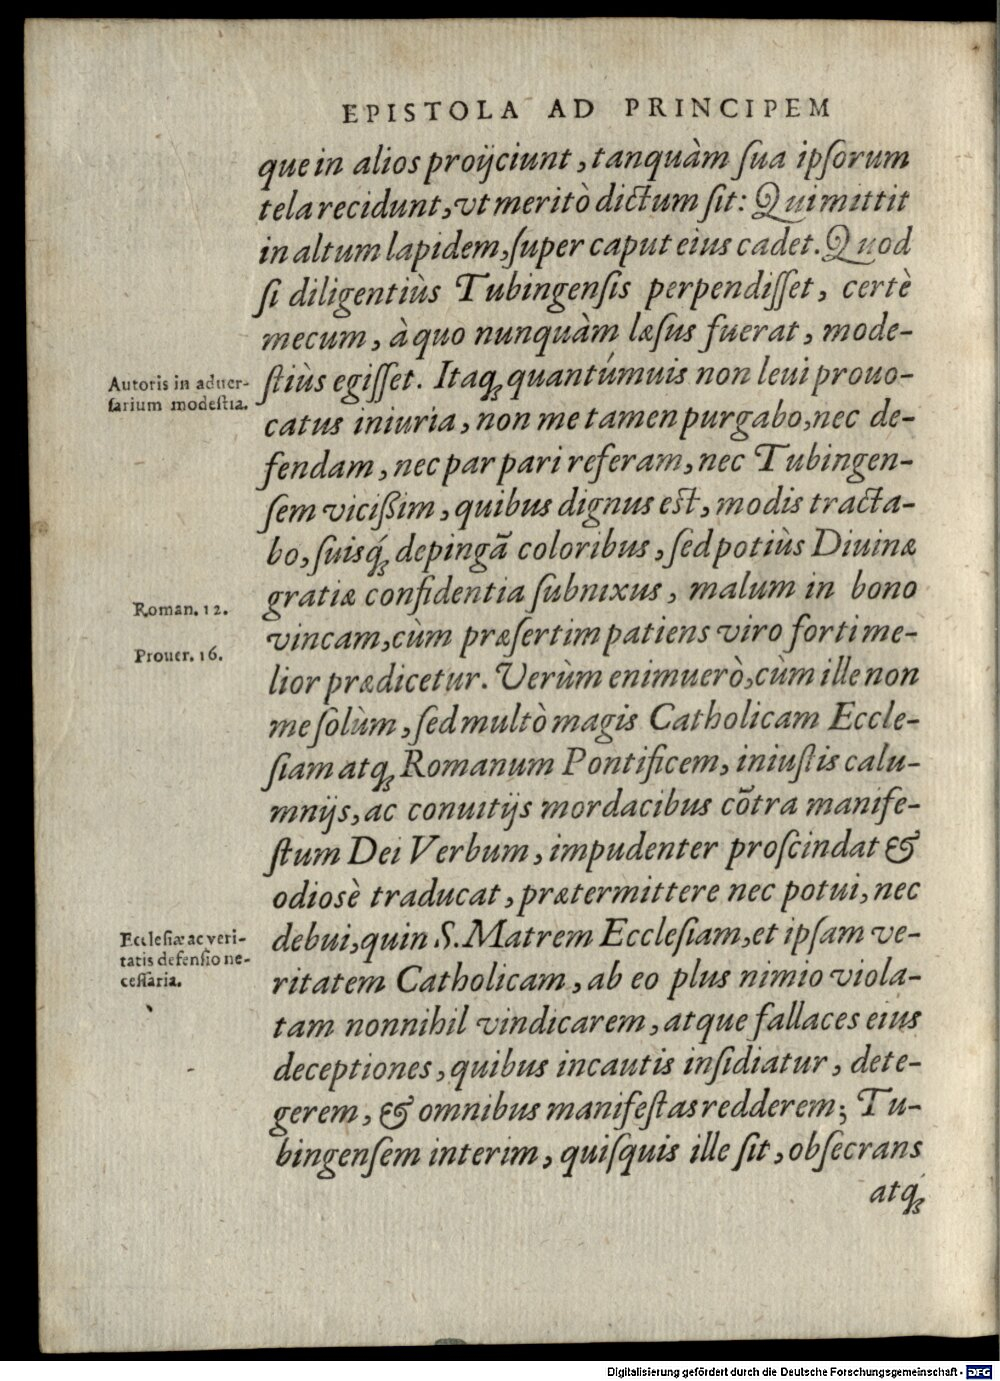 EPISTOLA AD PRINCIPEM
que in alios proijciunt, tanquàm ſua ipſorum
tela recidunt, vt meritò dictum ſit: Qui mittit
in altum lapidem, ſuper caput eius cadet. Quod
ſi diligentiùs Tubingenſis perpendiſſet, certè
mecum, à quo nunquàm læſus fuerat, mode-
ſtiùs egiſſet. Itaq; quantúmuis non leui prouo-
catus iniuria, non me tamen purgabo, nec de-
fendam, nec par pari referam, nec Tubingen-
ſem viciſsim, quibus dignus est, modis tracta-
bo, ſuisq́; depingā coloribus, ſed potiùs Diuinæ
gratiæ confidentia ſubnixus, malum in bono
vincam, cùm præſertim patiens viro forti me-
lior prædicetur. Verùm enimuerò, cùm ille non
me ſolùm, ſed multò magis Catholicam Eccle-
ſiam atq; Romanum Pontificem, iniuſtis calu-
mnijs, ac conuitijs mordacibus cōtra manife-
ſtum Dei Verbum, impudenter proſcindat &
odiosè traducat, prætermittere nec potui, nec
debui, quin S. Matrem Eccleſiam, et ipſam ve-
ritatem Catholicam, ab eo plus nimio viola-
tam nonnihil vindicarem, atque fallaces eius
deceptiones, quibus incautis inſidiatur, dete-
gerem, & omnibus manifeſtas redderem; Tu-
bingenſem interim, quiſquis ille ſit, obſecrans
atq́;
Autoris in aduer-
ſarium modeſtia.
Roman. 12.
Prouer. 16.
Eccleſiæ ac veri-
tatis defenſio ne-
ceſſaria.
Digitalisierung gefördert durch die Deutsche Forschungsgemeinschaft - DFG